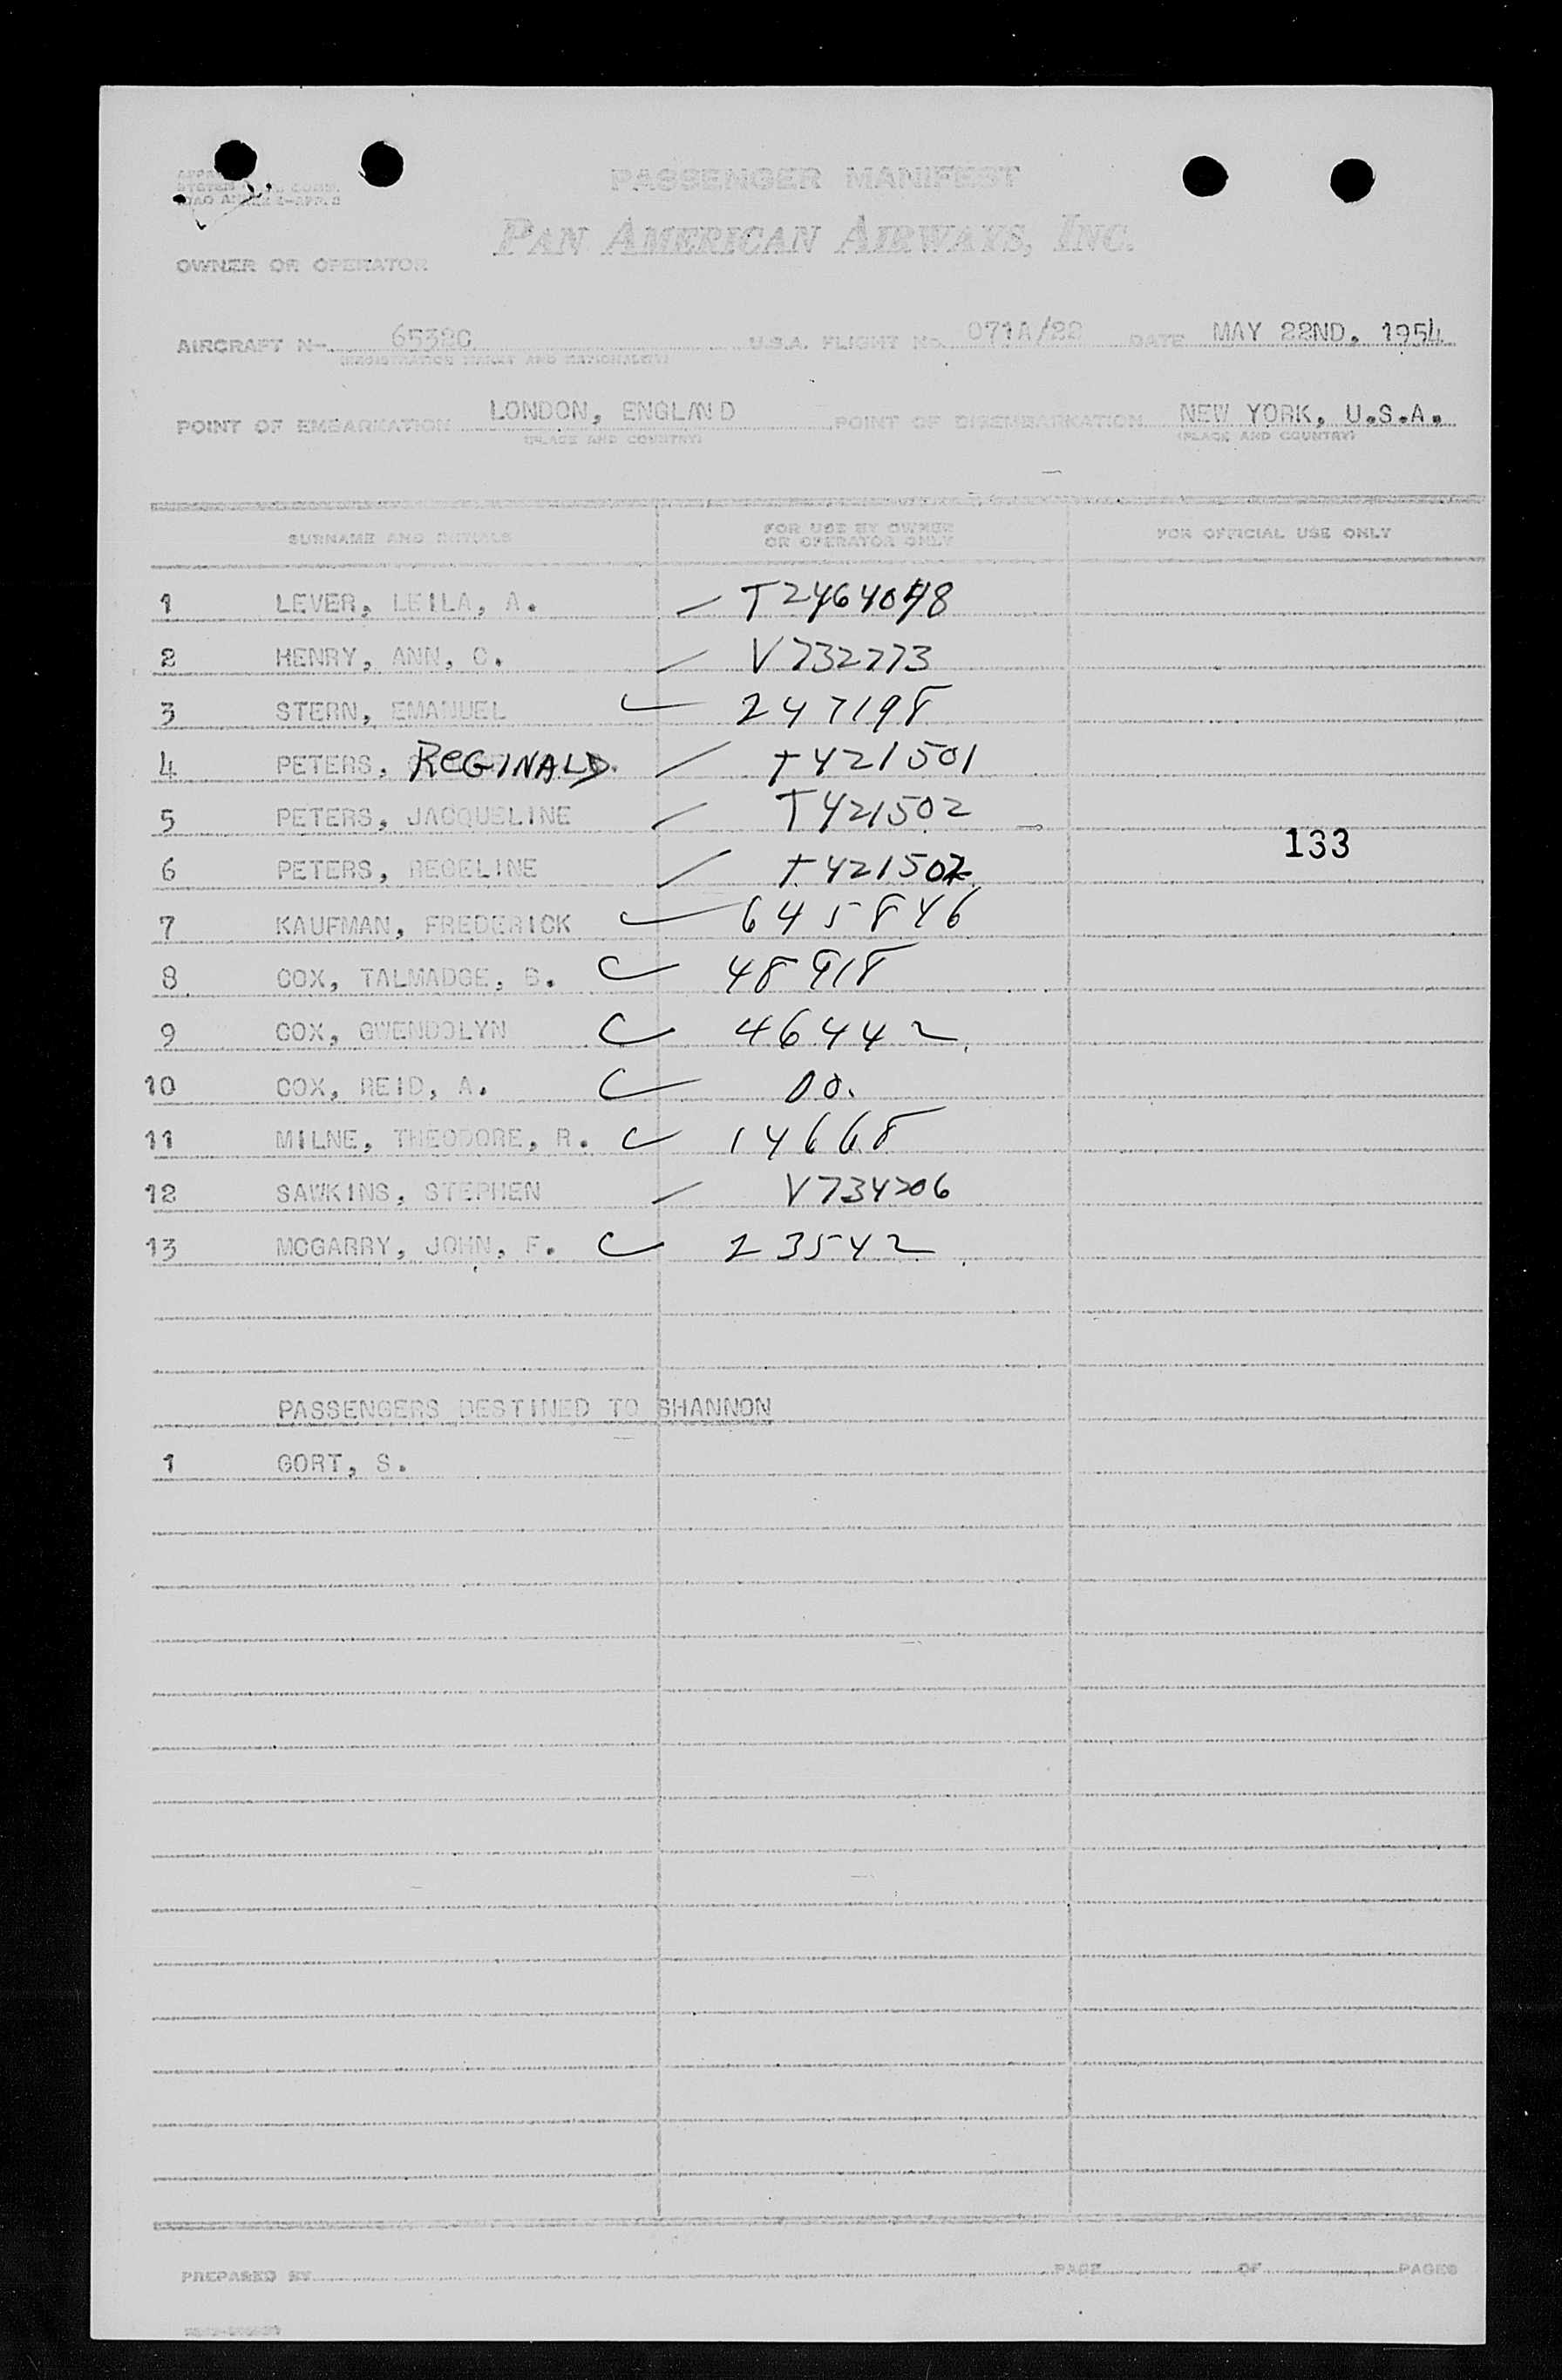 PASSENGER MANIFEST
PAN AMERICAN AIRWAYS, INC.
OWNER OR OPERATOR
AIRCRAFT No. 6532C U.S.A. FLIGHT No. 071A/22 DATE MAY 22ND, 1954
(REGISTRATION MARKS AND NATIONALITY)
POINT OF EMBARKATION LONDON, ENGLAND POINT OF DISEMBARKATION NEW YORK, U.S.A.
(PLACE AND COUNTRY) (PLACE AND COUNTRY)
SURNAME AND INITIALS FOR USE BY OWNER OR OPERATOR ONLY FOR OFFICIAL USE ONLY
1 LEVER, LEILA, A. T24640
2 HENRY, ANN, C. V732773
3 STERN, EMANUEL 247198
4 PETERS, ReGINALD. T421501
5 PETERS, JACQUELINE T421502
133
6 PETERS, REGELINE T421502
7 KAUFMAN, FREDERICK 645846
8 COX, TALMADGE, B. 48918
9 COX, GWENDOLYN 46442
10 COX, REID, A. DO.
11 MILNE, THEODORE, R. 14668
12 SAWKINS, STEPHEN V734206
13 MCGARRY, JOHN, F. 23542
PASSENGERS DESTINED TO SHANNON
1 GORT, S.
PREPARED BY PAGE OF PAGES